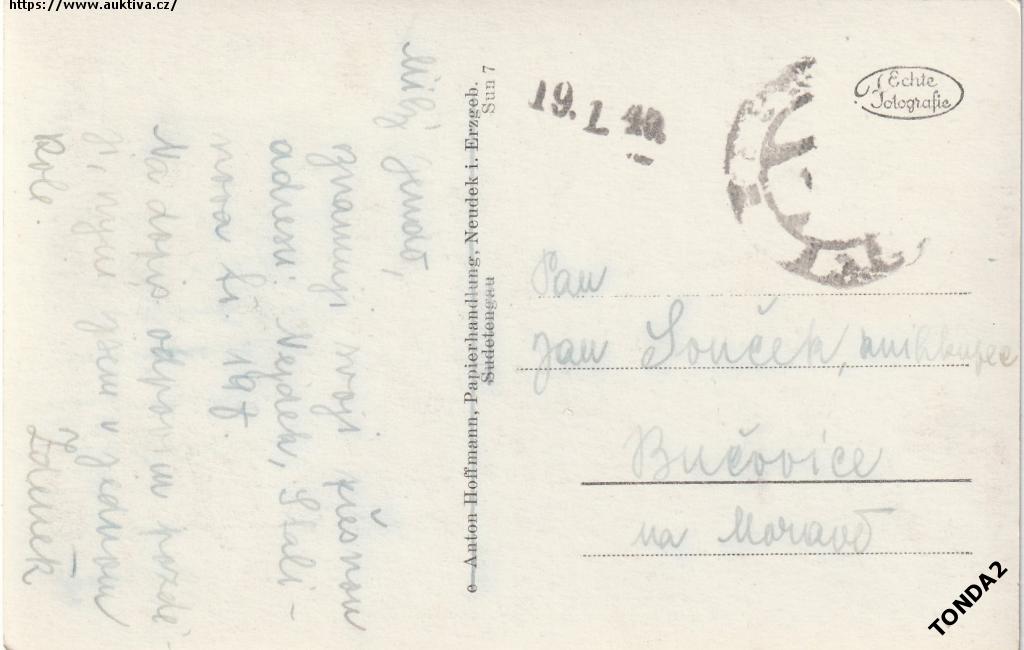 https://www.auktiva.cz/
Milý Jendo,
oznamuji svoji přesnou
adresu: Nejdek, Stali-
nova tř. 197.
Na dopis odpovím pozdě-
ji, nyní jsem v jednom
kole.
Zdenek
Anton Hoffmann, Papierhandlung, Neudek i. Erzgeb.
Sudetengau
Sun 7
19. I. 
Echte
Fotografie
Pan
Jan Souček, knihkupec
Bučovice
na Moravě
TONDA2